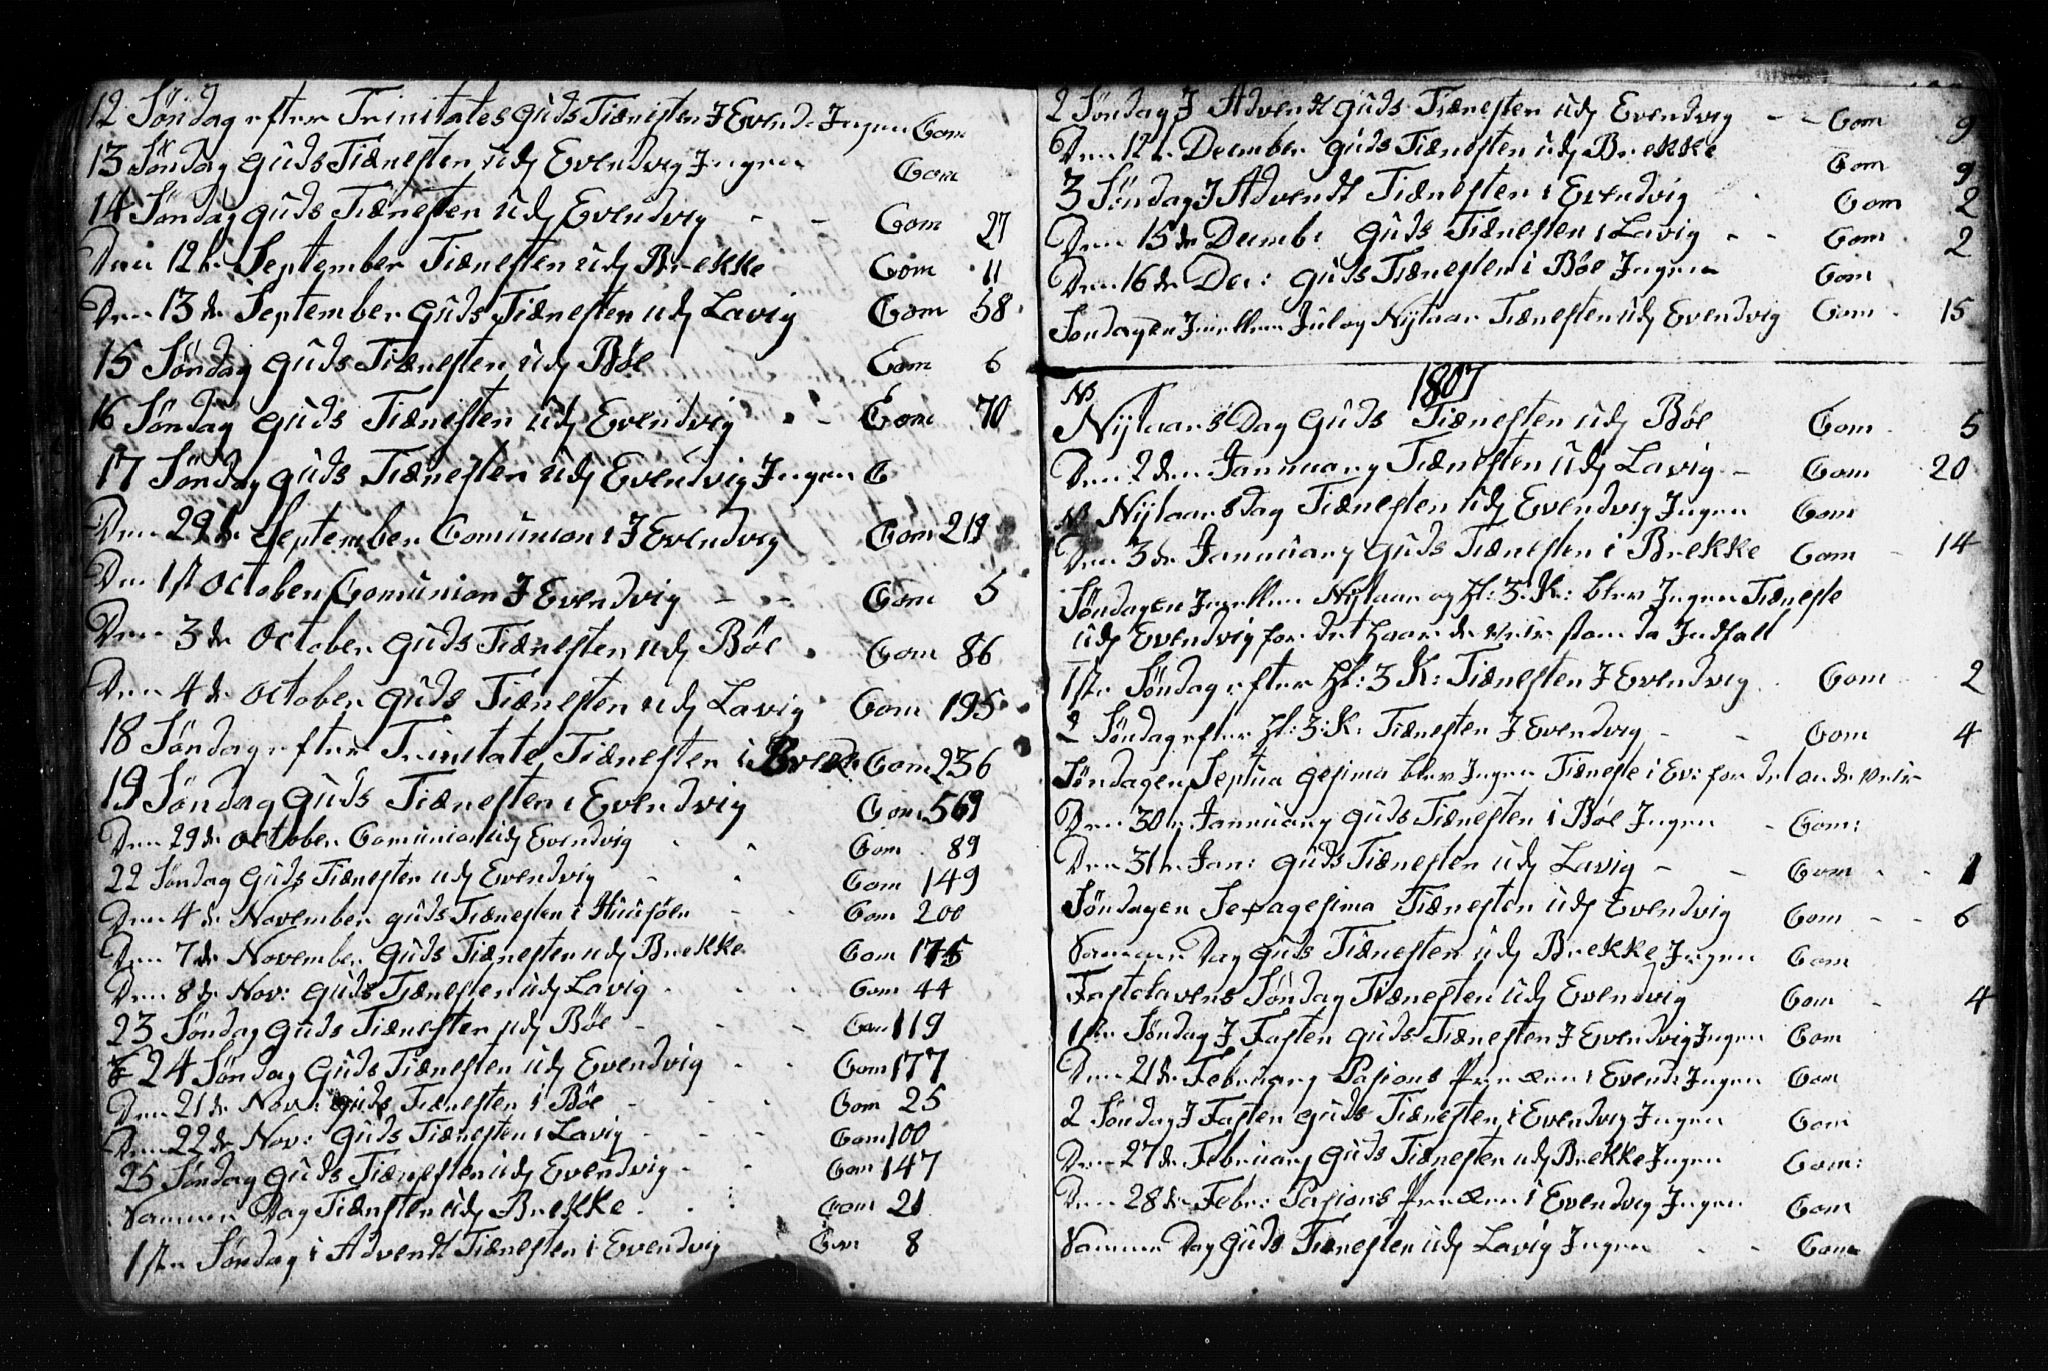 12 Søndag efter Trinitates Guds Tiænisten I Evend: Ingen Com
13 Søndag Guds Tiænesten udj Evendvig Ingen Com
14 Søndag Guds Tiænesten udj Evendvig - - Com 27
Den 12te September Tiænesten udj Brekke Com 11
Den 13de September Guds Tiænesten udj Lavig Com 58
15 Søndag Guds Tiænesten udj Bøe Com 6
16 Søndag Guds Tiænesten udj Evendvig - - Com 70
17 Søndag Guds Tiænesten udj Evendvig Ingen C
Den 29de September Comunion I Evendvig Com 219
Den 1st October Comunion I Evendvig - - Com 5
Den 3de October Guds Tiænesten udj Bøe Com 86
Den 4de October Guds Tiænesten udj Lavig Com 195
18 Søndag efter Trinitate Tiænesten i Brek: Com 236
19 Søndag Guds Tiænesten i Evendvig Com 569
Den 29de October Comunion udj Evendvig Com 89
22 Søndag Guds Tiænesten udj Evendvig - Com 149
Den 4de November Guds Tiænesten i Huusøen - - Com 200
Den 7de November Guds Tiænesten udj Brekke Com 175
Den 8de Nov: Guds Tiænesten udj Lavig - - Com 44
23 Søndag Guds Tiænesten udj Bøe - - - Com 119
24 Søndag Guds Tiænesten udj Evendvig - - Com 177
Den 21de Nov: Guds Tiænesten i Bøe - - - Com 25
Den 22de Nov: Guds Tiænesten i Lavig - - - Com 100
25 Søndag Guds Tiænesten udj Evendvig - - Com 147
Sammen Dag Tiænesten udj Brekke - - Com 21
1ste Søndag i Advendt Tiænesten i Evendvig Com 8
2 Søndag I Advendt Guds Tiænesten udj Evendvig - - Com 9
Den 12te December Guds Tiænesten udj Brekke Com 9
3 Søndag I Advendt Tiænesten i Evendvig Com 2
Den 15de Decemb: Guds Tiænesten i Lavig - - Com 2
Den 16de Dec: Guds Tiænesten i Bøe Ingen Com
Søndagen Imellem Jul og Nytaar Tiænesten udj Evendvig Com 15
1807
NB
Nytaars Dag Guds Tiænesten udj Bøe Com 5
Den 2den Januuary Tiænesten udj Lavig - Com 20
NB Nytaarsdag Tiænesten udj Evendvig Ingen Com
Den 3de Januuary Guds Tiænesten i Brekke Com - 14
Søndagen Imellem Nytaar og H: 3: K: blev Ingen Tiæneste
udj Evendvig for det haarde Veir som da Indfalt
1ste Søndag efter H: 3 K: Tiænesten I Evendvig Com 2
2 Søndag efter H: 3: K: Tiænesten I Evendvig - - Com 4
Søndagen Septuagesima blev Ingen Tiæneste i Ev: for det onde Veir
Den 30te Januuary Guds Tiænesten i Bøe Ingen - Com:
Den 31te Jan: Guds Tiænesten udj Lavig - - Com - - 1
Søndagen Sexagesima Tiænesten udj Evendvig Com - - 6
Sammen Dag Guds Tiænesten udj Brekke Ingen Com
Fastelavens Søndag Tiænesten udj Evendvig Com - 4
1ste Søndag I Fasten Guds Tiænesten I Evendvig Ingen Com
Den 21de Februuary Pasions Præcken i Evend: Ingen Com
2 Søndag I Fasten Guds Tiænesten i Evendvig Ingen Com
Den 27de Februuary Guds Tiænesten udj Brekke Ingen Com:
Den 28de Febr: Pasions Præcken i Evendvig Ingen Com
Sammen Dag Guds Tiænesten udj Lavig Ingen - - Com